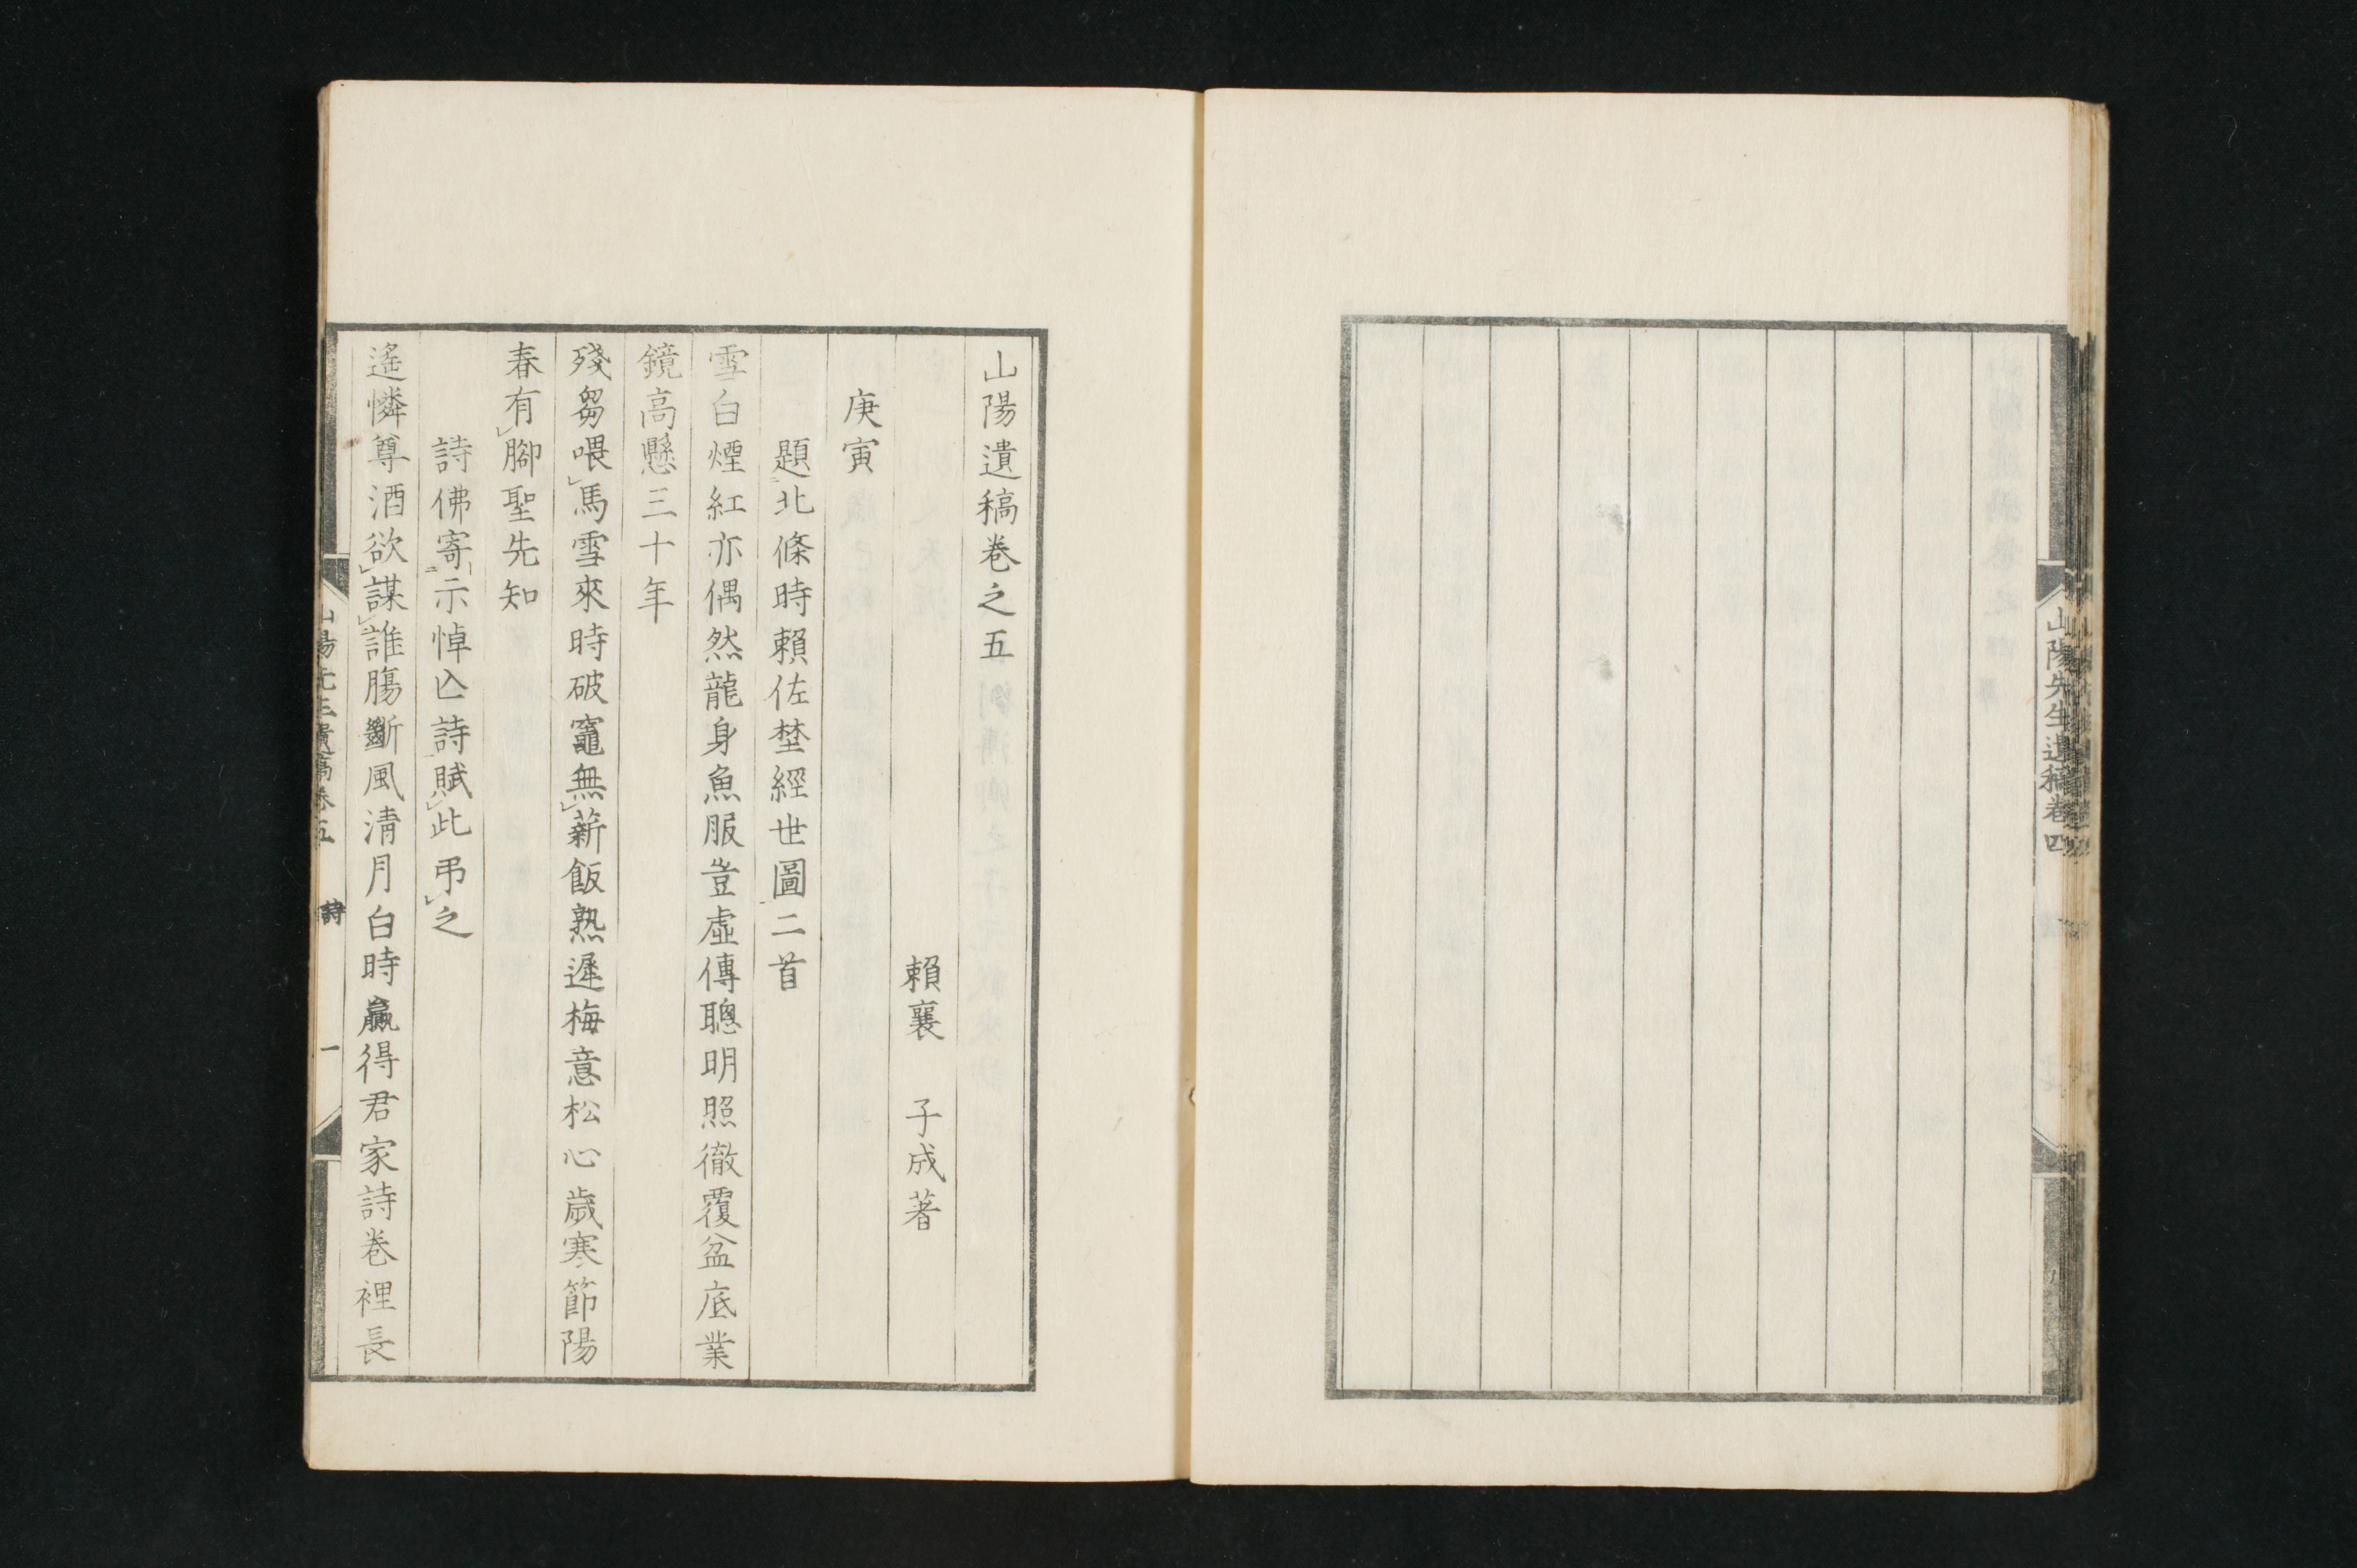 山陽先生遺稿卷四
山陽遺稿卷之五
賴襄　子成著
庚寅
題北條時賴佐埜經世圖二首
雪白煙紅亦偶然龍身魚服豈虛傳聰明照徹覆盆底業
鏡高懸三十年
殘芻喂馬雪來時破竈無薪飯熟遲梅意松心歲寒節陽
春有腳聖先知
詩佛寄示悼亾詩賦此弔之
遙憐尊酒欲謀誰膓斷風淸月白時贏得君家詩卷裡長
山陽先生遺稿卷五　詩　一